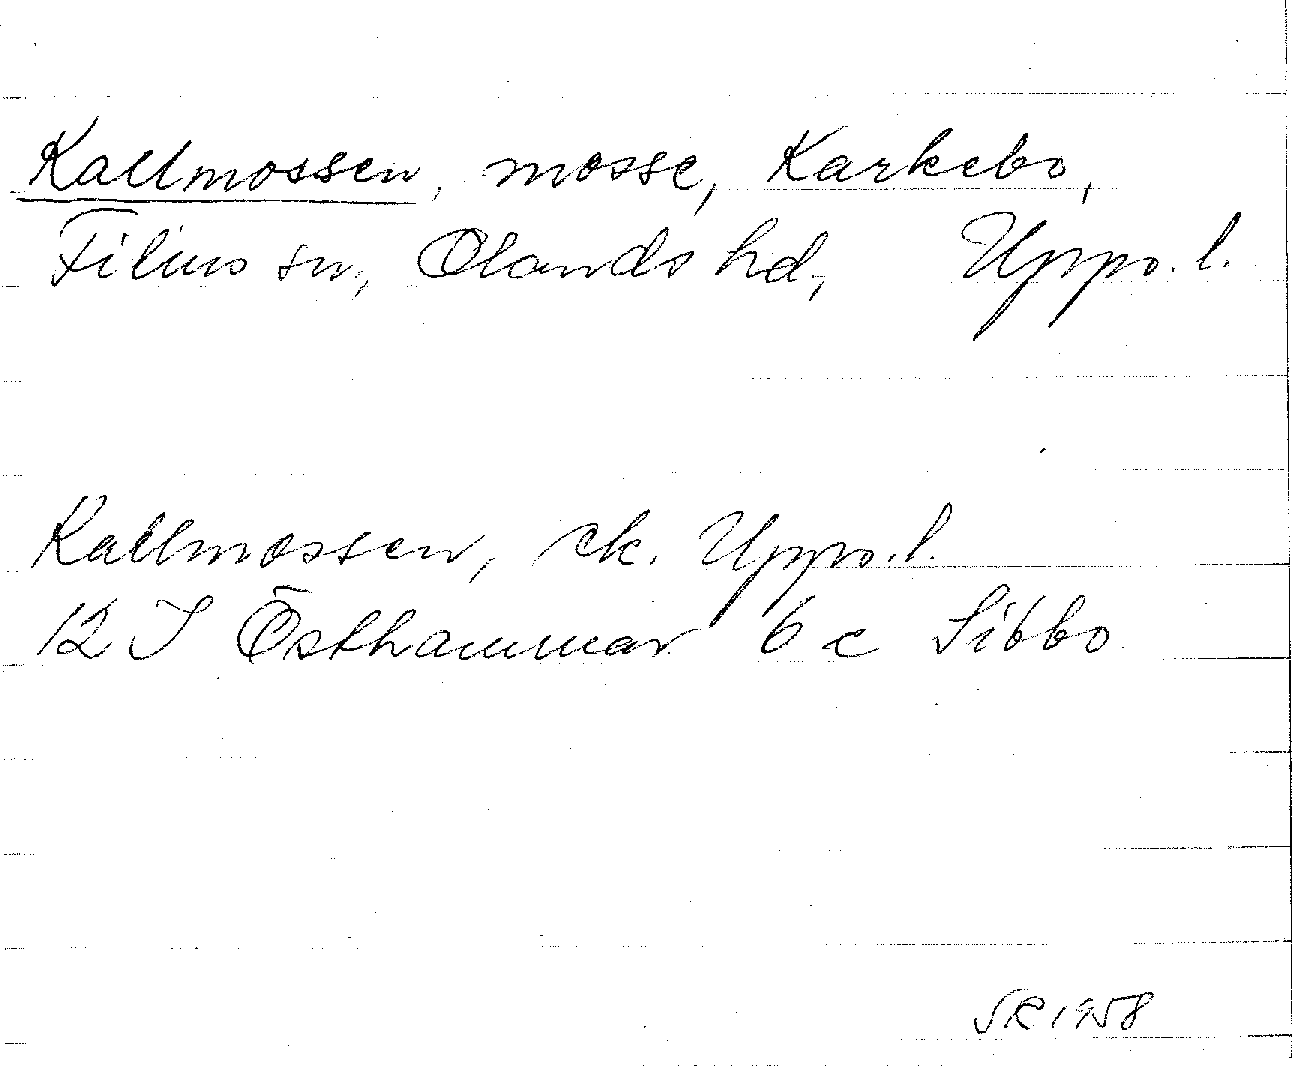 Kallmossen, mosse, Karkebo,
Films sn, Olands hd, Upps. l.
Kallmossen, ek. Upps. l.
12 I Östhammar 6 c Sibbo
SR 1958